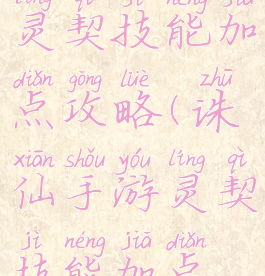 líng qì jì néng jiā
灵契技能加
diǎn gōng lüè zhū
点攻略(诛
xiān shǒu yóu líng qì
仙手游灵契
jì néng jiā diǎn
技能加点